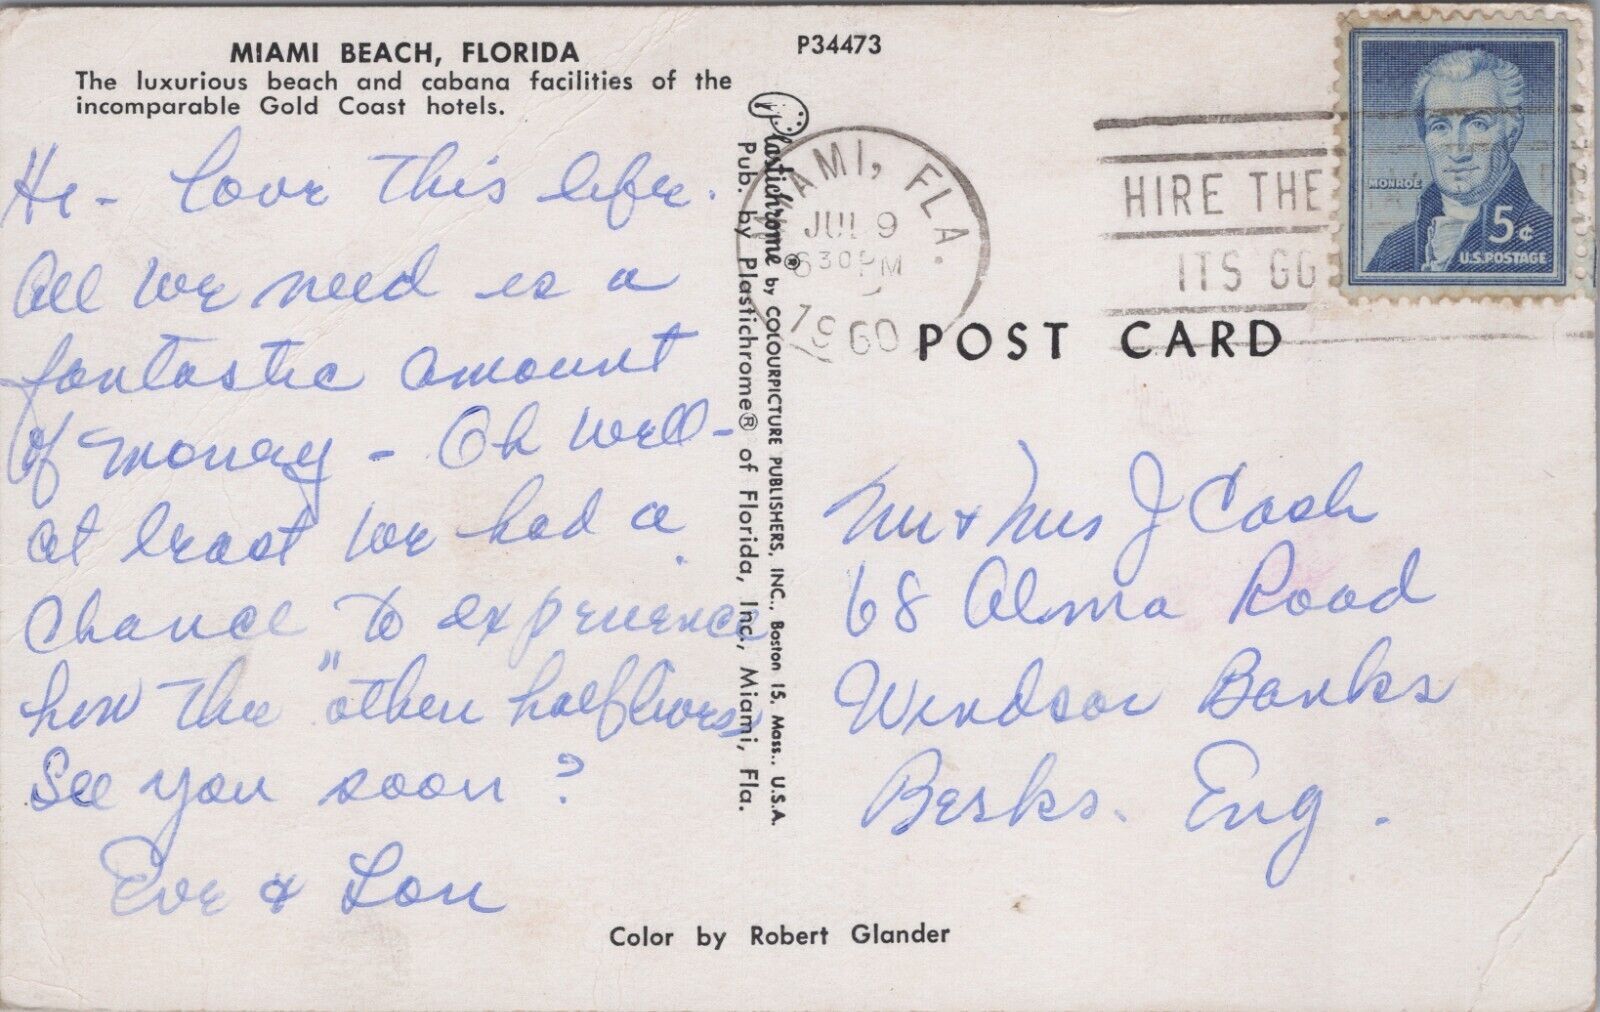 MIAMI BEACH, FLORIDA
The luxurious beach and cabana facilities of the
incomparable Gold Coast hotels.
P34473
Hi - Love this life.
All we need is a
fantastic amount
of money - Oh well -
at least we had a
chance to experience
how the "other half lives"
See you soon?
Eve & Lou
Plastichrome® by COLOURPICTURE PUBLISHERS, INC., Boston 15, Mass., U.S.A.
Pub. by Plastichrome® of Florida, Inc., Miami, Fla.
MIAMI, FLA.
JUL 9
630PM
1960
HIRE THE
ITS GO
MONROE
5¢
U.S. POSTAGE
POST CARD
Mr & Mrs J Cash
68 Alma Road
Windsor Banks
Berks. Eng.
Color by Robert Glander